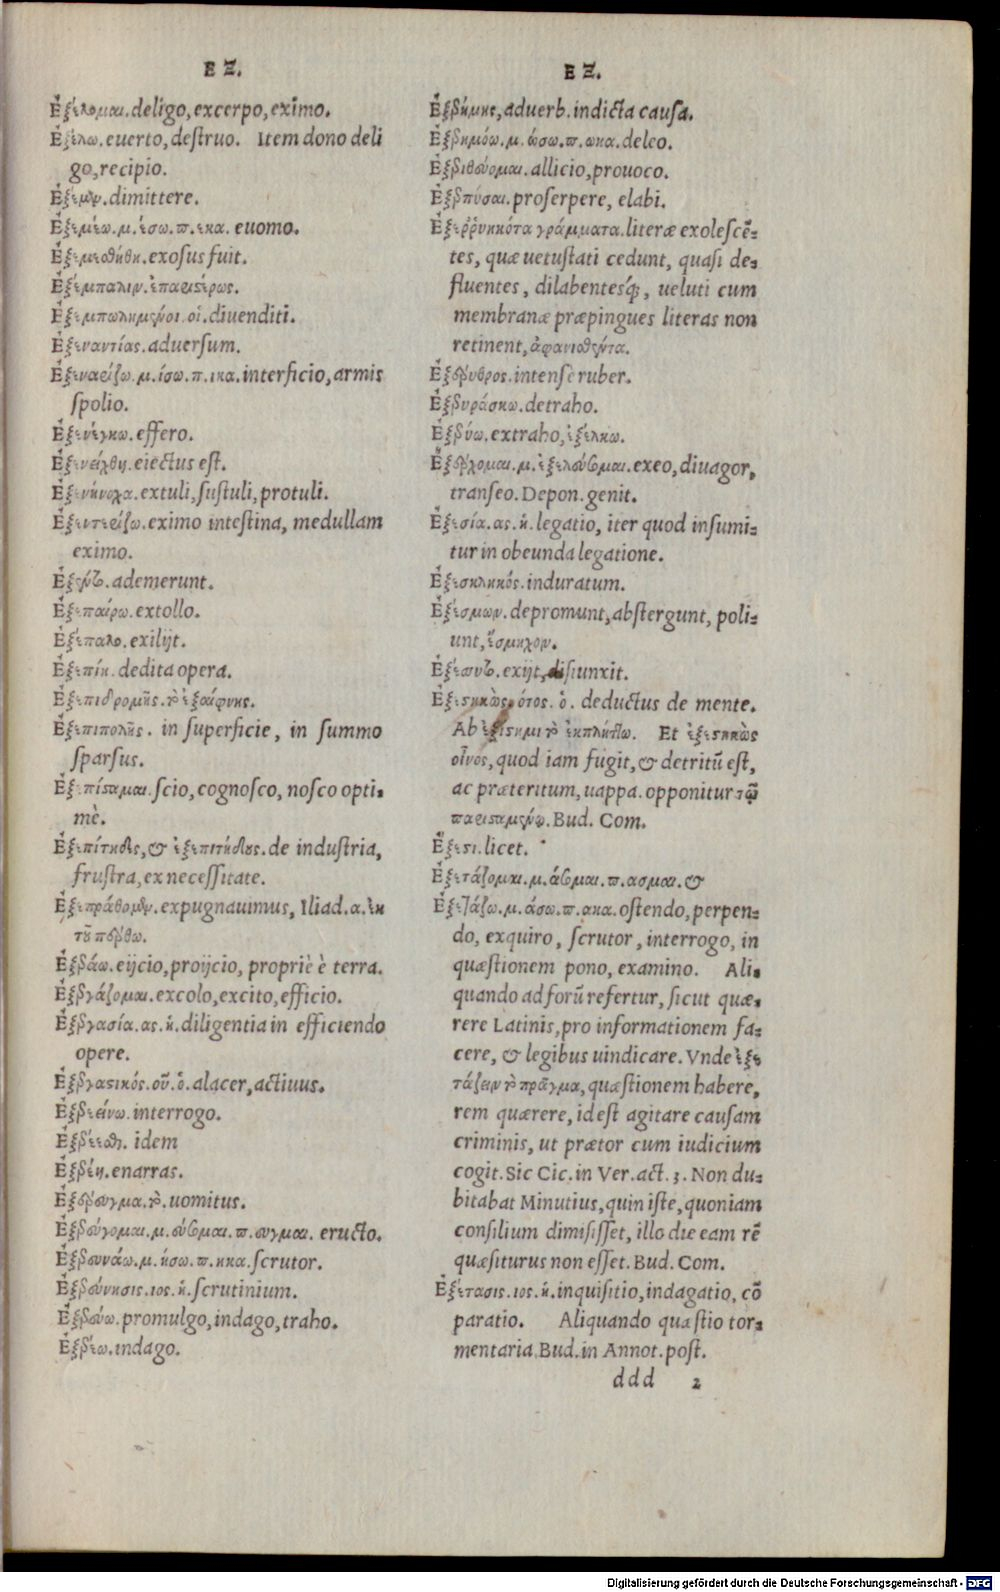 ΕΞ.
Ἐξέλομαι. deligo, excerpo, eximo.
Ἐξέλω. euerto, destruo. Item dono deli
go, recipio.
Ἐξέμεν. dimittere.
Ἐξεμέω. μ. έσω. π. εκα. euomo.
Ἐξεμισήθη. exosus fuit.
Ἐξέμπαλιν. ἐπαριστέρως.
Ἐξεμπολημένοι. οἱ. diuenditi.
Ἐξεναντίας. aduersum.
Ἐξεναρίζω. μ. ίσω. π. ικα. interficio, armis
spolio.
Ἐξενέγκω. effero.
Ἐξενείχθη. eiectus est.
Ἐξενήνοχα. extuli, sustuli, protuli.
Ἐξεντερίζω. eximo intestina, medullam
eximo.
ademerunt.
Ἐξεπαίρω. extollo.
Ἐξέπαλο. exilijt.
Ἐξεπίκ. dedita opera.
Ἐξεπιδρομῆς. τὸ ἐξαίφνης.
Ἐξεπιπολῆς. in superficie, in summo
sparsus.
Ἐξεπίσταμαι. scio, cognosco, nosco opti-
mè.
Ἐξεπίτηδες, & ἐξεπιτήδους. de industria,
frustra, ex necessitate.
Ἐξεπράθομεν. expugnauimus, Iliad. α. ἐκ
τοῦ πέρθω.
Ἐξεράω. eijcio, proijcio, propriè è terra.
Ἐξεργάζομαι. excolo, excito, efficio.
Ἐξεργασία. ας. ἡ. diligentia in efficiendo
opere.
Ἐξεργαστικός. οῦ. ὁ. alacer, actiuus.
Ἐξερεείνω. interrogo.
idem
Ἐξερέῃ. enarras.
Ἐξέρευγμα. τὸ. uomitus.
Ἐξερεύγομαι. μ. εύξομαι. π. ευγμαι. eructo.
Ἐξερευνάω. μ. ήσω. π. ηκα. scrutor.
Ἐξερεύνησις. ιος. ἡ. scrutinium.
Ἐξερεύω. promulgo, indago, traho.
Ἐξερέω. indago.
ΕΞ.
Ἐξερήμης, aduerb. indicta causa.
Ἐξερημόω. μ. ώσω. π. ωκα. deleo.
Ἐξεριθεύομαι. allicio, prouoco.
Ἐξερπύσαι. proserpere, elabi.
Ἐξεῤῥυηκότα γράμματα. literæ exolescē-
tes, quæ uetustati cedunt, quasi de-
fluentes, dilabentesq́;, ueluti cum
membranæ præpingues literas non
retinent, ἀφανισθέντα.
Ἐξέρυθρος. intensè ruber.
Ἐξερυράσκω. detraho.
Ἐξερύω. extraho, ἐξέλκω.
Ἐξέρχομαι. μ. ἐξελεύσομαι. exeo, diuagor,
transeo. Depon. genit.
Ἐξεσία. ας. ἡ. legatio, iter quod insumi-
tur in obeunda legatione.
Ἐξεσκληκός. induratum.
Ἐξέσμων. depromunt, abstergunt, poli-
unt, ἔσμηχον.
Ἐξέσυτο. exijt, disiunxit.
Ἐξεστηκὼς, ότος. ὁ. deductus de mente.
Ab ἐξίστημι τὸ ἐκπλήττω. Et ἐξεστηκὼς
οἶνος, quod iam fugit, & detritū est,
ac præteritum, uappa. opponitur τῷ
παρισταμένῳ. Bud. Com.
Ἔξεστι. licet.
Ἐξετάζομαι. μ. άσομαι. π. ασμαι. &
Ἐξετάζω. μ. άσω. π. ακα. ostendo, perpen-
do, exquiro, scrutor, interrogo, in
quæstionem pono, examino. Ali-
quando ad forū refertur, sicut quæ-
rere Latinis, pro informationem fa-
cere, & legibus uindicare. Vnde ἐξε
τάζειν τὸ πρᾶγμα, quæstionem habere,
rem quærere, id est agitare causam
criminis, ut prætor cum iudicium
cogit. Sic Cic. in Ver. act. 3. Non du-
bitabat Minutius, quin iste, quoniam
consilium dimisisset, illo die eam rē
quæsiturus non esset. Bud. Com.
Ἐξέτασις. ιος. ἡ. inquisitio, indagatio, cō
paratio. Aliquando quæstio tor-
mentaria. Bud. in Annot. post.
ddd 2
Digitalisierung gefördert durch die Deutsche Forschungsgemeinschaft - DFG